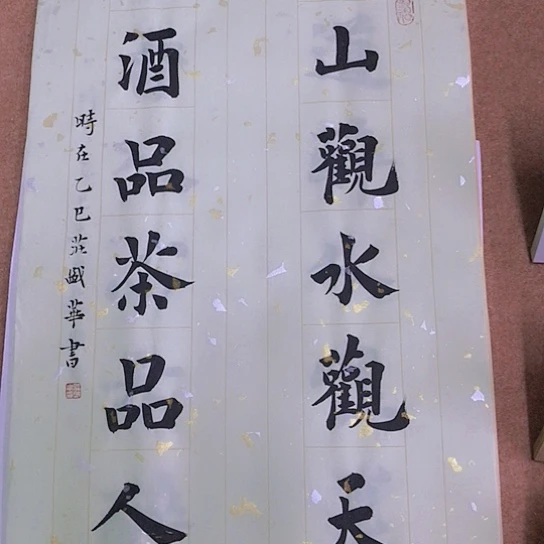 山觀水觀天
酒品茶品人
時在乙巳莊盛華書